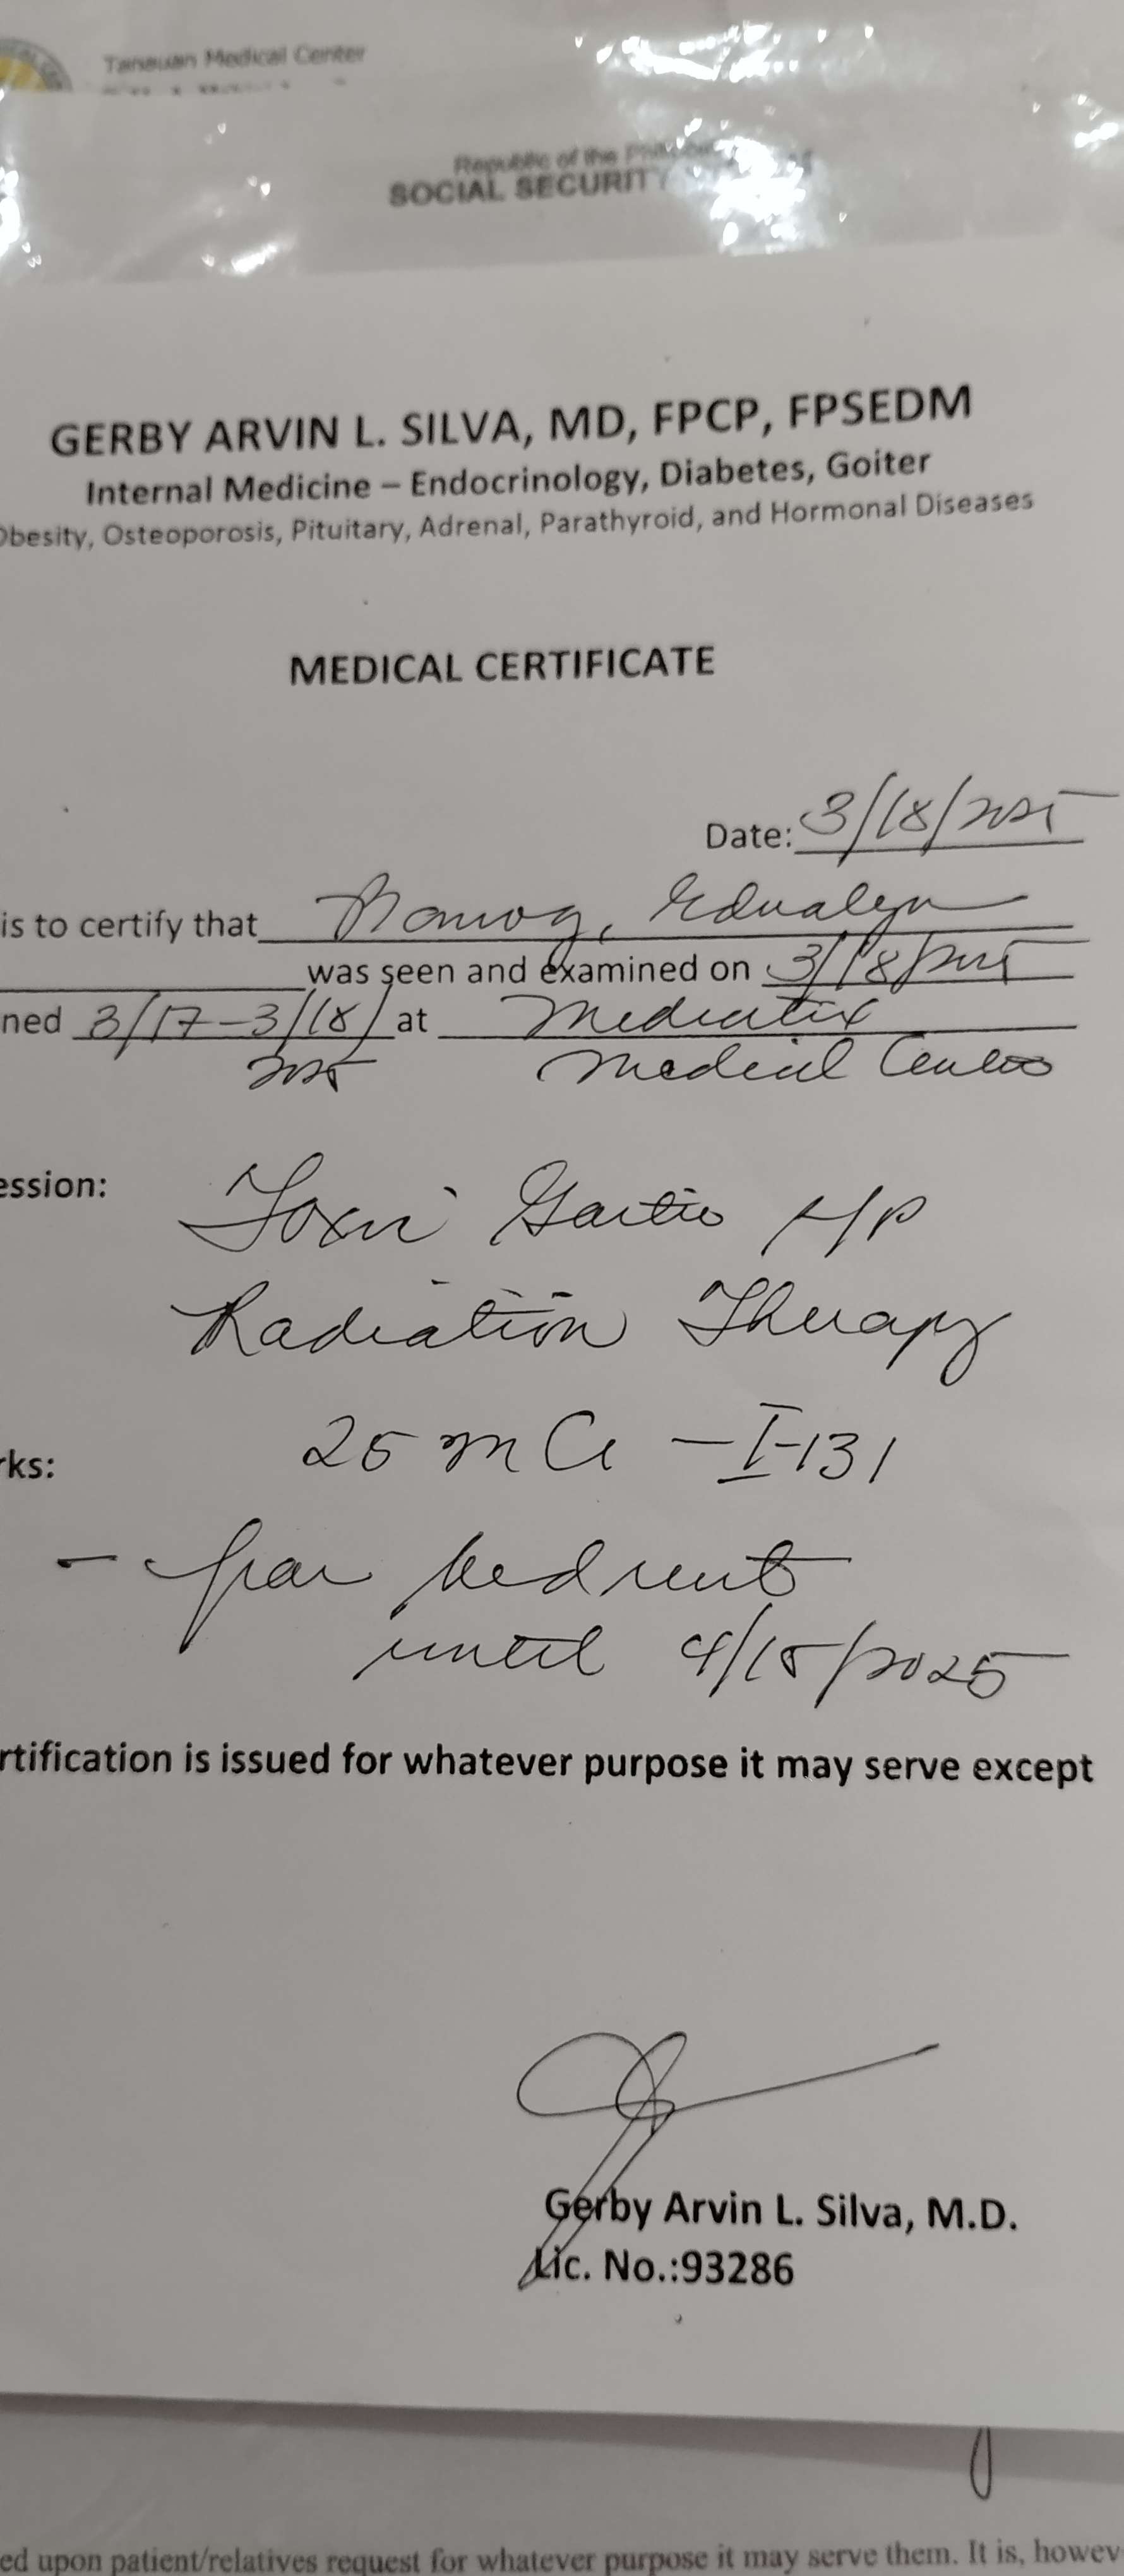 Tanauan Medical Center
Republic of the
SOCIAL SECURITY
GERBY ARVIN L. SILVA, MD, FPCP, FPSEDM
Internal Medicine – Endocrinology, Diabetes, Goiter
Obesity, Osteoporosis, Pituitary, Adrenal, Parathyroid, and Hormonal Diseases
MEDICAL CERTIFICATE
Date: 3/18/2025
is to certify that Edualyn
was seen and examined on 3/18/2025
ned 3/17-3/18/ at Mediatrix
2025 Medical Center
ession: Toxic Goiter S/P
Radiation Therapy
rks: 25 mCi - I-131
- for bedrest
until 4/15/2025
rtification is issued for whatever purpose it may serve except
Gerby Arvin L. Silva, M.D.
Lic. No.:93286
ed upon patient/relatives request for whatever purpose it may serve them. It is, howev